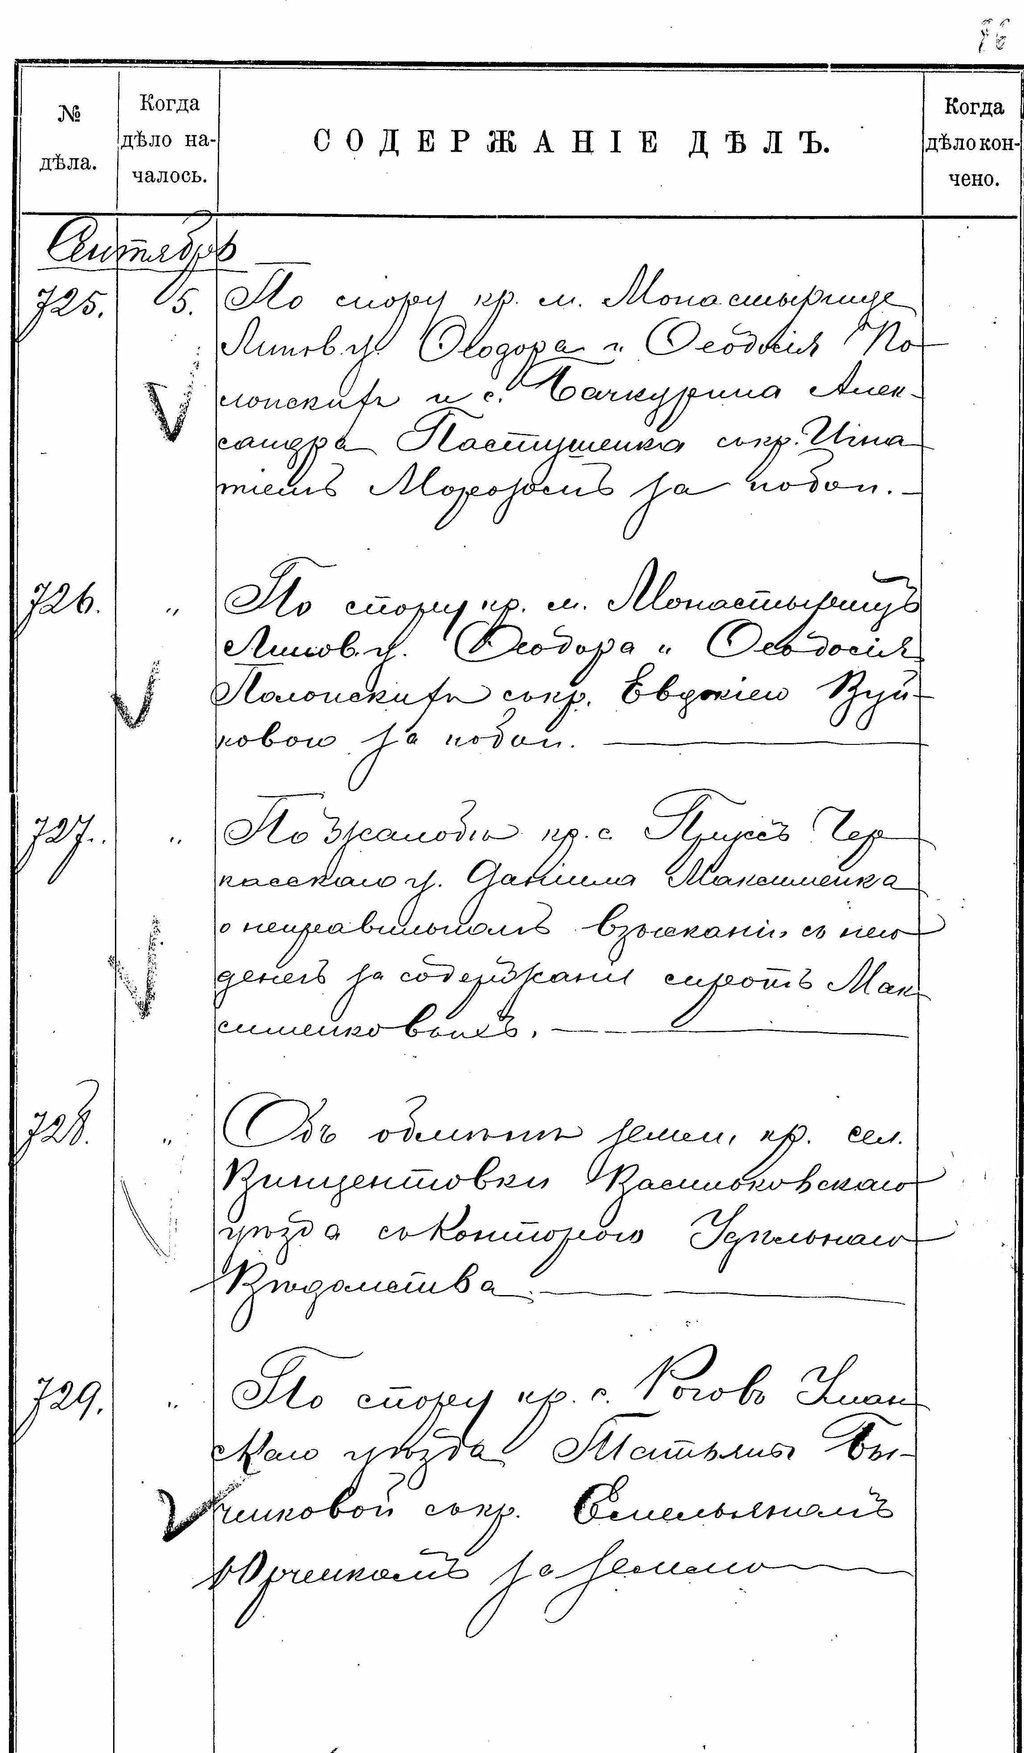 76
№ дѣла.
Когда дѣло на-чалось.
СОДЕРЖАНІЕ ДѢЛЪ.
Когда дѣло кон-чено.
Сентябрь
725. 5. По спору кр. м. Монастырище
Липов. у. Ѳеодора и Ѳеодосія По
лонскихъ и с. Бачкурина Алек-
сандра Пастушенка съ кр. Игна
тіемъ Морозомъ за побои.
726. " По спору кр. м. Монастырищъ
Липов. у. Ѳеодора и Ѳеодосія
Полонскихъ съ кр. Евдокіею Вуй-
ковою за побои.
727. " По жалобѣ кр. с. Прусъ Чер
касскаго у. Даніила Максименка
о неправильномъ взысканіи съ него
денегъ за содержаніе сиротъ Мак
сименковыхъ.
728. " Объ обмѣнѣ земли кр. сел.
Винцентовки Васильковскаго
уѣзда съ Конторою Удѣльнаго
Вѣдомства.
729. " По спору кр. с. Роговъ Уман
скаго уѣзда Татьяны Бы-
чковой съ кр. Емельяномъ
Юрченкомъ за землю